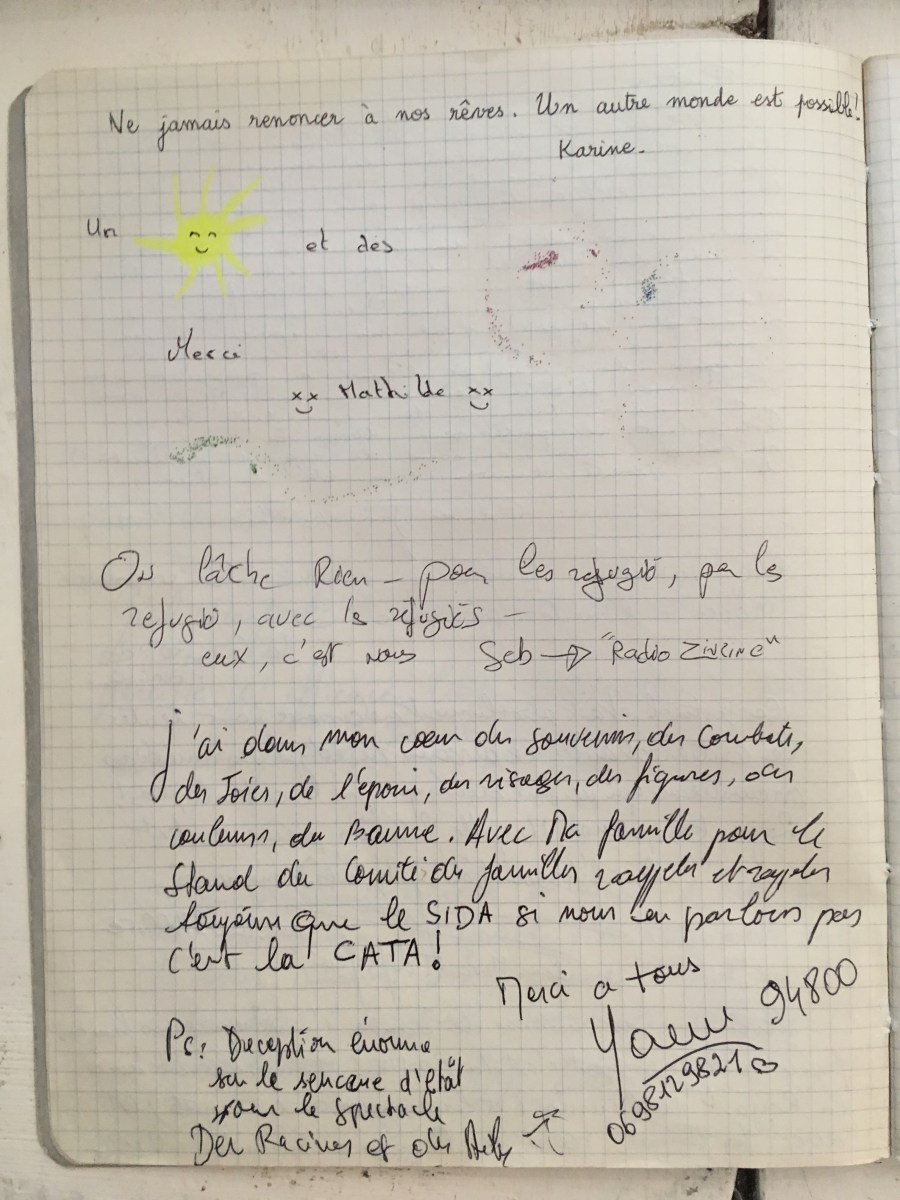 Ne jamais renoncer à nos rêves. Un autre monde est possible!
Karine.
Un et des
Merci
xx Mathilde xx
On lâche Rien – pour les refugié, par les
refugié, avec les réfugiés –
eux, c'est nous Seb → "Radio ZINZINE"
J'ai dans mon coeur des souvenirs, des Combats,
des Joies, de l'époir, des visages, des figures, des
couleurs, du Baume. Avec Ma famille pour le
Stand du Comité des familles rappeler et rappeler
toujours que le SIDA si nous en parlons pas
c'est la CATA!
Merci a tous
Yann 94800
0698129821
Ps: Deception énorme
sur le d'etât
pour le Spectacle
Des Racines et des Ailes